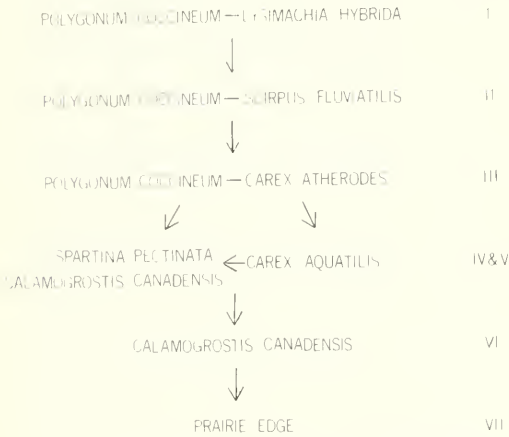 POLYGONUM COCCINEUM — LYSIMACHIA HYBRIDA I
POLYGONUM COCCINEUM — SCIRPUS FLUVIATILIS II
POLYGONUM COCCINEUM — CAREX ATHERODES III
SPARTINA PECTINATA ← CAREX AQUATILIS IV & V
CALAMOGROSTIS CANADENSIS
CALAMOGROSTIS CANADENSIS VI
PRAIRIE EDGE VII